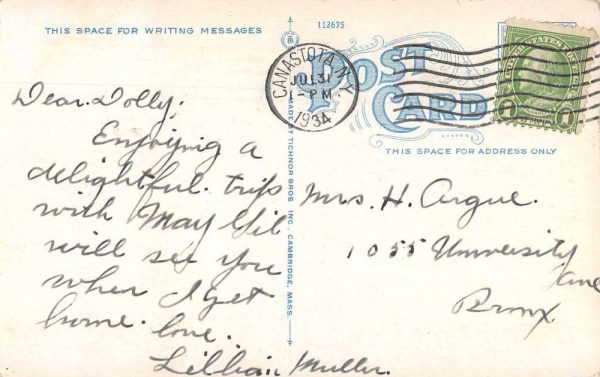 THIS SPACE FOR WRITING MESSAGES
112675
CANASTOTA N.Y.
JUL 31
1-PM
1934
POST
CARD
UNITED STATES
1
1
THIS SPACE FOR ADDRESS ONLY
MADE BY TICHNOR BROS. INC., CAMBRIDGE, MASS.
Dear Dolly,
Enjoying a
delightful trip
with May
will see you
when I get
home. love.
Lillian Muller.
Mrs. H. Argue.
1055 University
Ave
Bronx